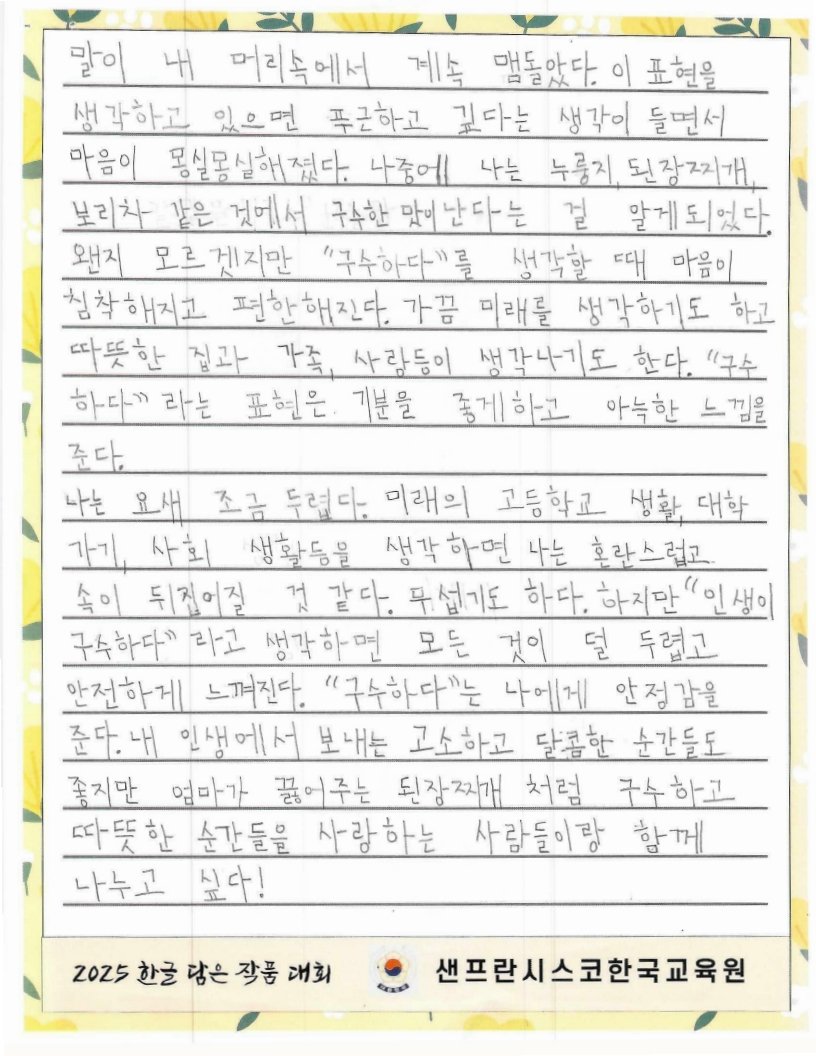 말이 내 머리속에서 계속 맴돌았다. 이 표현을
생각하고 있으면 푸근하고 깊다는 생각이 들면서
마음이 몽실몽실해졌다. 나중에 나는 누룽지, 된장찌개,
보리차 같은 것에서 구수한 맛이 난다는 걸 알게되었다.
왠지 모르겠지만 "구수하다"를 생각할 때 마음이
침착해지고 편한해진다. 가끔 미래를 생각하기도 하고
따뜻한 집과 가족, 사람등이 생각나기도 한다. "구수
하다" 라는 표현은 기분을 좋게하고 아늑한 느낌을
준다.
나는 요새 조금 두렵다. 미래의 고등학교 생활, 대학
가기, 사회 생활등을 생각하면 나는 혼란스럽고
속이 뒤집어질 것 같다. 무섭기도 하다. 하지만 "인생이
구수하다" 라고 생각하면 모든 것이 덜 두렵고
안전하게 느껴진다. "구수하다"는 나에게 안정감을
준다. 내 인생에서 보내는 고소하고 달콤한 순간들도
좋지만 엄마가 끓어주는 된장찌개 처럼 구수하고
따뜻한 순간들을 사랑하는 사람들이랑 함께
나누고 싶다!
2025 한글 담은 작품 대회 샌프란시스코한국교육원